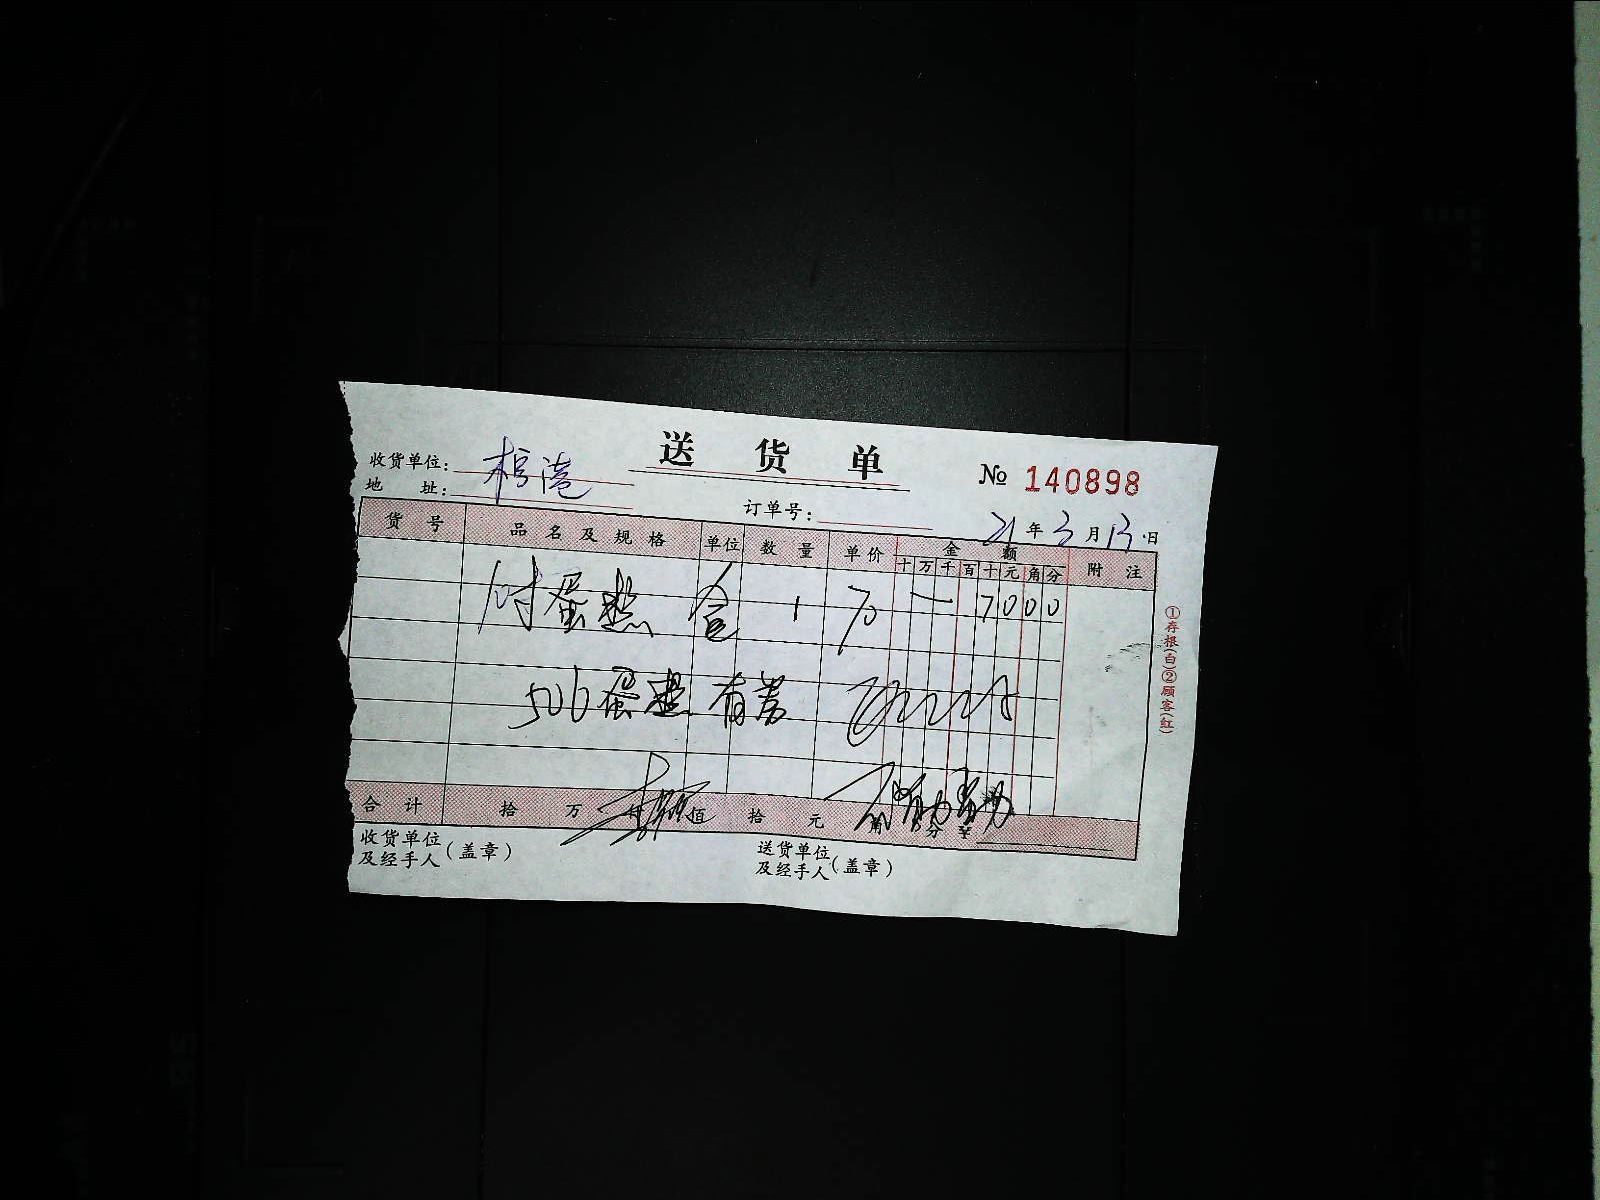 送 货 单
收货单位:
№ 140898
地 址:
订单号:
21 年 3 月 13 日
货 号 品 名 及 规 格 单位 数 量 单价 金 额 附 注
十 万 千 百 十 元 角 分
10寸蛋糕 盒 1 70 7000
506蛋糕 有券
合 计 拾 万 仟 佰 拾 元 角 分 ¥
收货单位
及经手人(盖章)
送货单位
及经手人(盖章)
①存根(白)②顾客(红)